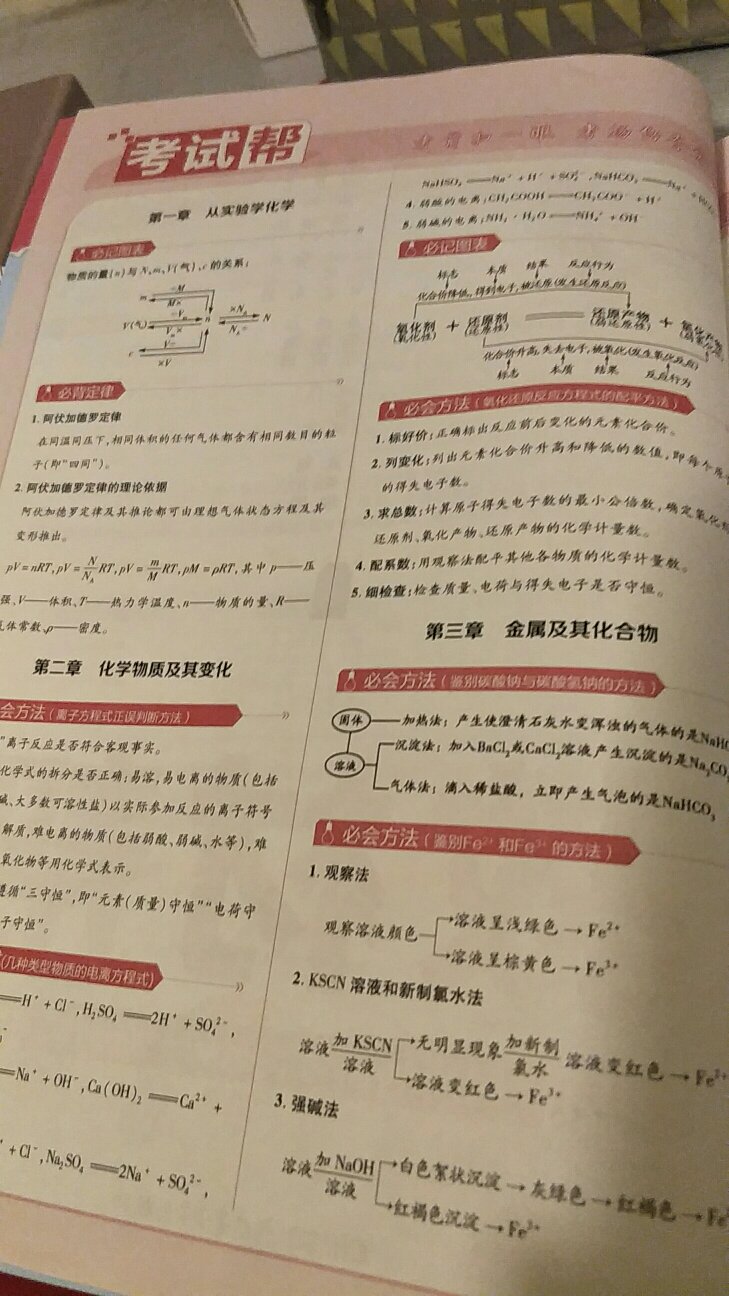 考试帮
考前扫一眼 考场
第一章 从实验学化学
必记图表
物质的量(n)与N、m、V(气)、c的关系:
÷M
m
M×
÷Vm
×NA
V(气) n N
Vm×
NA÷
V÷
c
×V
必背定律
1. 阿伏加德罗定律
在同温同压下,相同体积的任何气体都含有相同数目的粒
子(即“四同”)。
2. 阿伏加德罗定律的理论依据
阿伏加德罗定律及其推论都可由理想气体状态方程及其
变形推出。
pV=nRT,pV=N/NA RT,pV=m/M RT,pM=ρRT,其中p——压
强、V——体积、T——热力学温度、n——物质的量、R——
气体常数、ρ——密度。
第二章 化学物质及其变化
会方法(离子方程式正误判断方法)
”离子反应是否符合客观事实。
化学式的拆分是否正确:易溶,易电离的物质(包括
碱、大多数可溶性盐)以实际参加反应的离子符号
解质,难电离的物质(包括弱酸、弱碱、水等),难
氧化物等用化学式表示。
遵循“三守恒”,即“元素(质量)守恒”“电荷守
子守恒”。
(几种类型物质的电离方程式)
══H⁺+Cl⁻,H₂SO₄══2H⁺+SO₄²⁻,
══Na⁺+OH⁻,Ca(OH)₂══Ca²⁺+
⁺+Cl⁻,Na₂SO₄══2Na⁺+SO₄²⁻,
NaHSO₄══Na⁺+H⁺+SO₄²⁻,NaHCO₃══Na⁺+HCO₃
4. 弱酸的电离:CH₃COOH══CH₃COO⁻+H⁺
5. 弱碱的电离:NH₃·H₂O══NH₄⁺+OH⁻
必记图表
标志 本质 结果 反应行为
化合价降低,得到电子,被还原(发生还原反应)
氧化剂 + 还原剂 ══ 还原产物 + 氧化产物
(氧化性) (还原性) (弱还原性) (弱氧化性)
化合价升高,失去电子,被氧化(发生氧化反应)
标志 本质 结果 反应行为
必会方法(氧化还原反应方程式的配平方法)
1. 标好价:正确标出反应前后变化的元素化合价。
2. 列变化:列出元素化合价升高和降低的数值,即每个
的得失电子数。
3. 求总数:计算原子得失电子数的最小公倍数,确定氧化
还原剂、氧化产物、还原产物的化学计量数。
4. 配系数:用观察法配平其他各物质的化学计量数。
5. 细检查:检查质量、电荷与得失电子是否守恒。
第三章 金属及其化合物
必会方法(鉴别碳酸钠与碳酸氢钠的方法)
固体 加热法:产生使澄清石灰水变浑浊的气体的是NaHC
沉淀法:加入BaCl₂或CaCl₂溶液产生沉淀的是Na₂CO₃
溶液
气体法:滴入稀盐酸,立即产生气泡的是NaHCO₃
必会方法(鉴别Fe²⁺和Fe³⁺的方法)
1. 观察法
观察溶液颜色
→溶液呈浅绿色→Fe²⁺
→溶液呈棕黄色→Fe³⁺
2. KSCN溶液和新制氯水法
溶液 加KSCN溶液 →无明显现象 加新制氯水 溶液变红色→Fe²⁺
→溶液变红色→Fe³⁺
3. 强碱法
溶液 加NaOH溶液 →白色絮状沉淀→灰绿色→红褐色→Fe
→红褐色沉淀→Fe³⁺